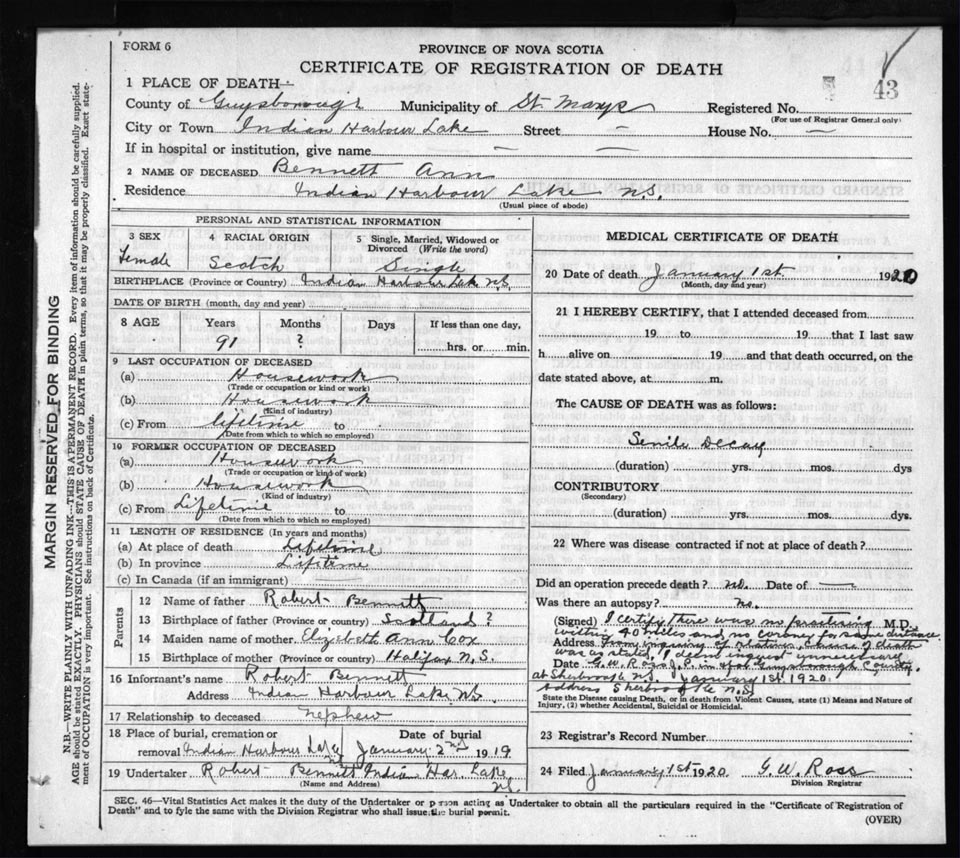 FORM 6
PROVINCE OF NOVA SCOTIA
CERTIFICATE OF REGISTRATION OF DEATH
43
1 PLACE OF DEATH
County of Guysborough Municipality of St. Marys Registered No.
(For use of Registrar General only)
City or Town Indian Harbour Lake Street — House No. —
If in hospital or institution, give name — —
2 NAME OF DECEASED Bennett Ann
Residence Indian Harbour Lake N.S.
(Usual place of abode)
PERSONAL AND STATISTICAL INFORMATION
3 SEX 4 RACIAL ORIGIN 5 Single, Married, Widowed or Divorced (Write the word)
Female Scotch Single
BIRTHPLACE (Province or Country) Indian Harbour Lake N.S.
DATE OF BIRTH (month, day and year)
8 AGE Years Months Days If less than one day,
91 ? hrs. or min.
9 LAST OCCUPATION OF DECEASED
(a) Housework
(Trade or occupation or kind or work)
(b) Housework
(Kind of industry)
(c) From lifetime to
(Date from which to which so employed)
10 FORMER OCCUPATION OF DECEASED
(a) Housework
(Trade or occupation or kind of work)
(b) Housework
(Kind of industry)
(c) From Lifetime to
(Date from which to which so employed)
11 LENGTH OF RESIDENCE (In years and months)
(a) At place of death Lifetime
(b) In province Lifetime
(c) In Canada (if an immigrant) —
Parents
12 Name of father Robert Bennett
13 Birthplace of father (Province or country) Scotland ?
14 Maiden name of mother Elizabeth Ann Cox
15 Birthplace of mother (Province or country) Halifax N.S.
16 Informant's name Robert Bennett
Address Indian Harbour Lake NS
17 Relationship to deceased nephew
18 Place of burial, cremation or Date of burial
removal Indian Harbour Lake January 2nd 1919
19 Undertaker Robert Bennett Indian Har. Lake
NS.
(Name and Address)
MEDICAL CERTIFICATE OF DEATH
20 Date of death January 1st 1920
(Month, day and year)
21 I HEREBY CERTIFY, that I attended deceased from
19 to 19 that I last saw
h alive on 19 and that death occurred, on the
date stated above, at m.
The CAUSE OF DEATH was as follows:
Senile Decay
(duration) yrs. mos. dys
CONTRIBUTORY
(Secondary)
(duration) yrs. mos. dys.
22 Where was disease contracted if not at place of death?
Did an operation precede death? no. Date of —
Was there an autopsy? no.
(Signed) I certify there was no practising M.D.
within 40 miles and no coroner for same distance
Address From inquiry of relatives cause of death
was as stated. I deem inquest unnecessary
Date G.W. Ross J.P. in & for Guysborough County
at Sherbrooke N.S. January 1st 1920.
Address Sherbrooke N.S.
State the Disease causing Death, or in death from Violent Causes, state (1) Means and Nature of
Injury, (2) whether Accidental, Suicidal or Homicidal.
23 Registrar's Record Number
24 Filed January 1st 1920 G. W. Ross
Division Registrar
SEC. 46—Vital Statistics Act makes it the duty of the Undertaker or person acting as Undertaker to obtain all the particulars required in the "Certificate of Registration of
Death" and to fyle the same with the Division Registrar who shall issue the burial permit.
(OVER)
MARGIN RESERVED FOR BINDING
N.B.—WRITE PLAINLY WITH UNFADING INK—THIS IS A PERMANENT RECORD. Every item of information should be carefully supplied.
AGE should be stated EXACTLY. PHYSICIANS should STATE CAUSE OF DEATH in plain terms, so that it may be properly classified. Exact state-
ment of OCCUPATION is very important. See instructions on back of Certificate.